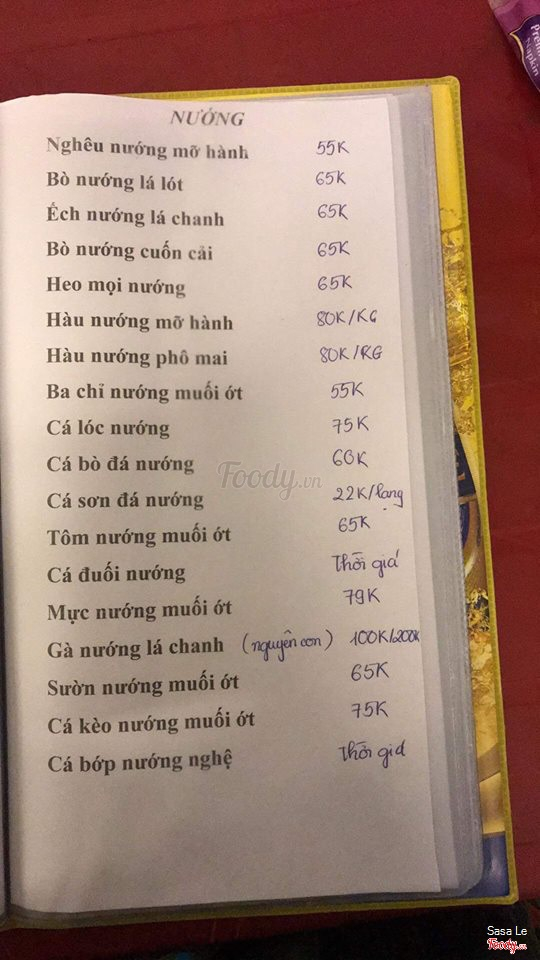 Premi
Napkin
NƯỚNG
Nghêu nướng mỡ hành 55K
Bò nướng lá lót 65K
Ếch nướng lá chanh 65K
Bò nướng cuốn cải 65K
Heo mọi nướng 65K
Hàu nướng mỡ hành 80K/KG
Hàu nướng phô mai 80K/KG
Ba chỉ nướng muối ớt 55K
Cá lóc nướng 75K
Cá bò đá nướng 60K
Foody.vn
Cá sơn đá nướng 22K/lạng
Tôm nướng muối ớt 65K
Cá đuối nướng Thời giá
Mực nướng muối ớt 79K
Gà nướng lá chanh (nguyên con) 100K/200K
Sườn nướng muối ớt 65K
Cá kèo nướng muối ớt 75K
Cá bớp nướng nghệ Thời giá
Sasa Le
Foody.vn